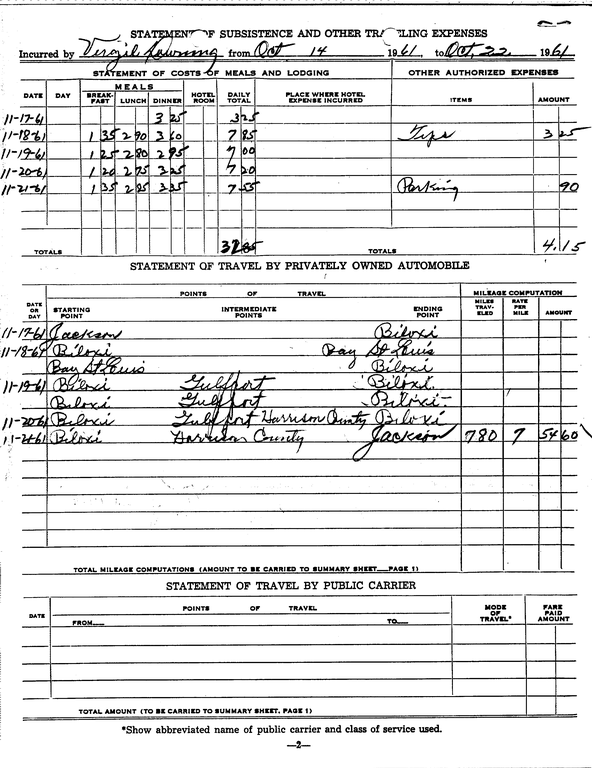 STATEMENT OF SUBSISTENCE AND OTHER TRAVELING EXPENSES
Incurred by Virgil Downing from Oct 14 1961, to Oct. 22 1961
STATEMENT OF COSTS OF MEALS AND LODGING OTHER AUTHORIZED EXPENSES
DATE DAY MEALS BREAK-FAST LUNCH DINNER HOTEL ROOM DAILY TOTAL PLACE WHERE HOTEL EXPENSE INCURRED ITEMS AMOUNT
11-17-61 3 25 3 25
11-18-61 1 35 2 90 3 60 7 85 Tips 3 25
11-19-61 1 25 2 80 2 95 7 00
11-20-61 1 20 2 75 3 25 7 20
11-21-61 1 35 2 85 3 35 7 55 Parking 90
TOTALS 32 85 TOTALS 4.15
STATEMENT OF TRAVEL BY PRIVATELY OWNED AUTOMOBILE
DATE OR DAY POINTS OF TRAVEL MILEAGE COMPUTATION
STARTING POINT INTERMEDIATE POINTS ENDING POINT MILES TRAV-ELED RATE PER MILE AMOUNT
11-17-61 Jackson Biloxi
11-18-61 Biloxi Bay St Louis
Bay St Louis Biloxi
11-19-61 Biloxi Gulfport Biloxi
Biloxi Gulfport Biloxi
11-20-61 Biloxi Gulfport Harrison County Biloxi
11-21-61 Biloxi Harrison County Jackson 780 7 54 60
TOTAL MILEAGE COMPUTATIONS (AMOUNT TO BE CARRIED TO SUMMARY SHEET PAGE 1)
STATEMENT OF TRAVEL BY PUBLIC CARRIER
DATE POINTS OF TRAVEL MODE OF TRAVEL* FARE PAID AMOUNT
FROM TO
TOTAL AMOUNT (TO BE CARRIED TO SUMMARY SHEET, PAGE 1)
*Show abbreviated name of public carrier and class of service used.
—2—